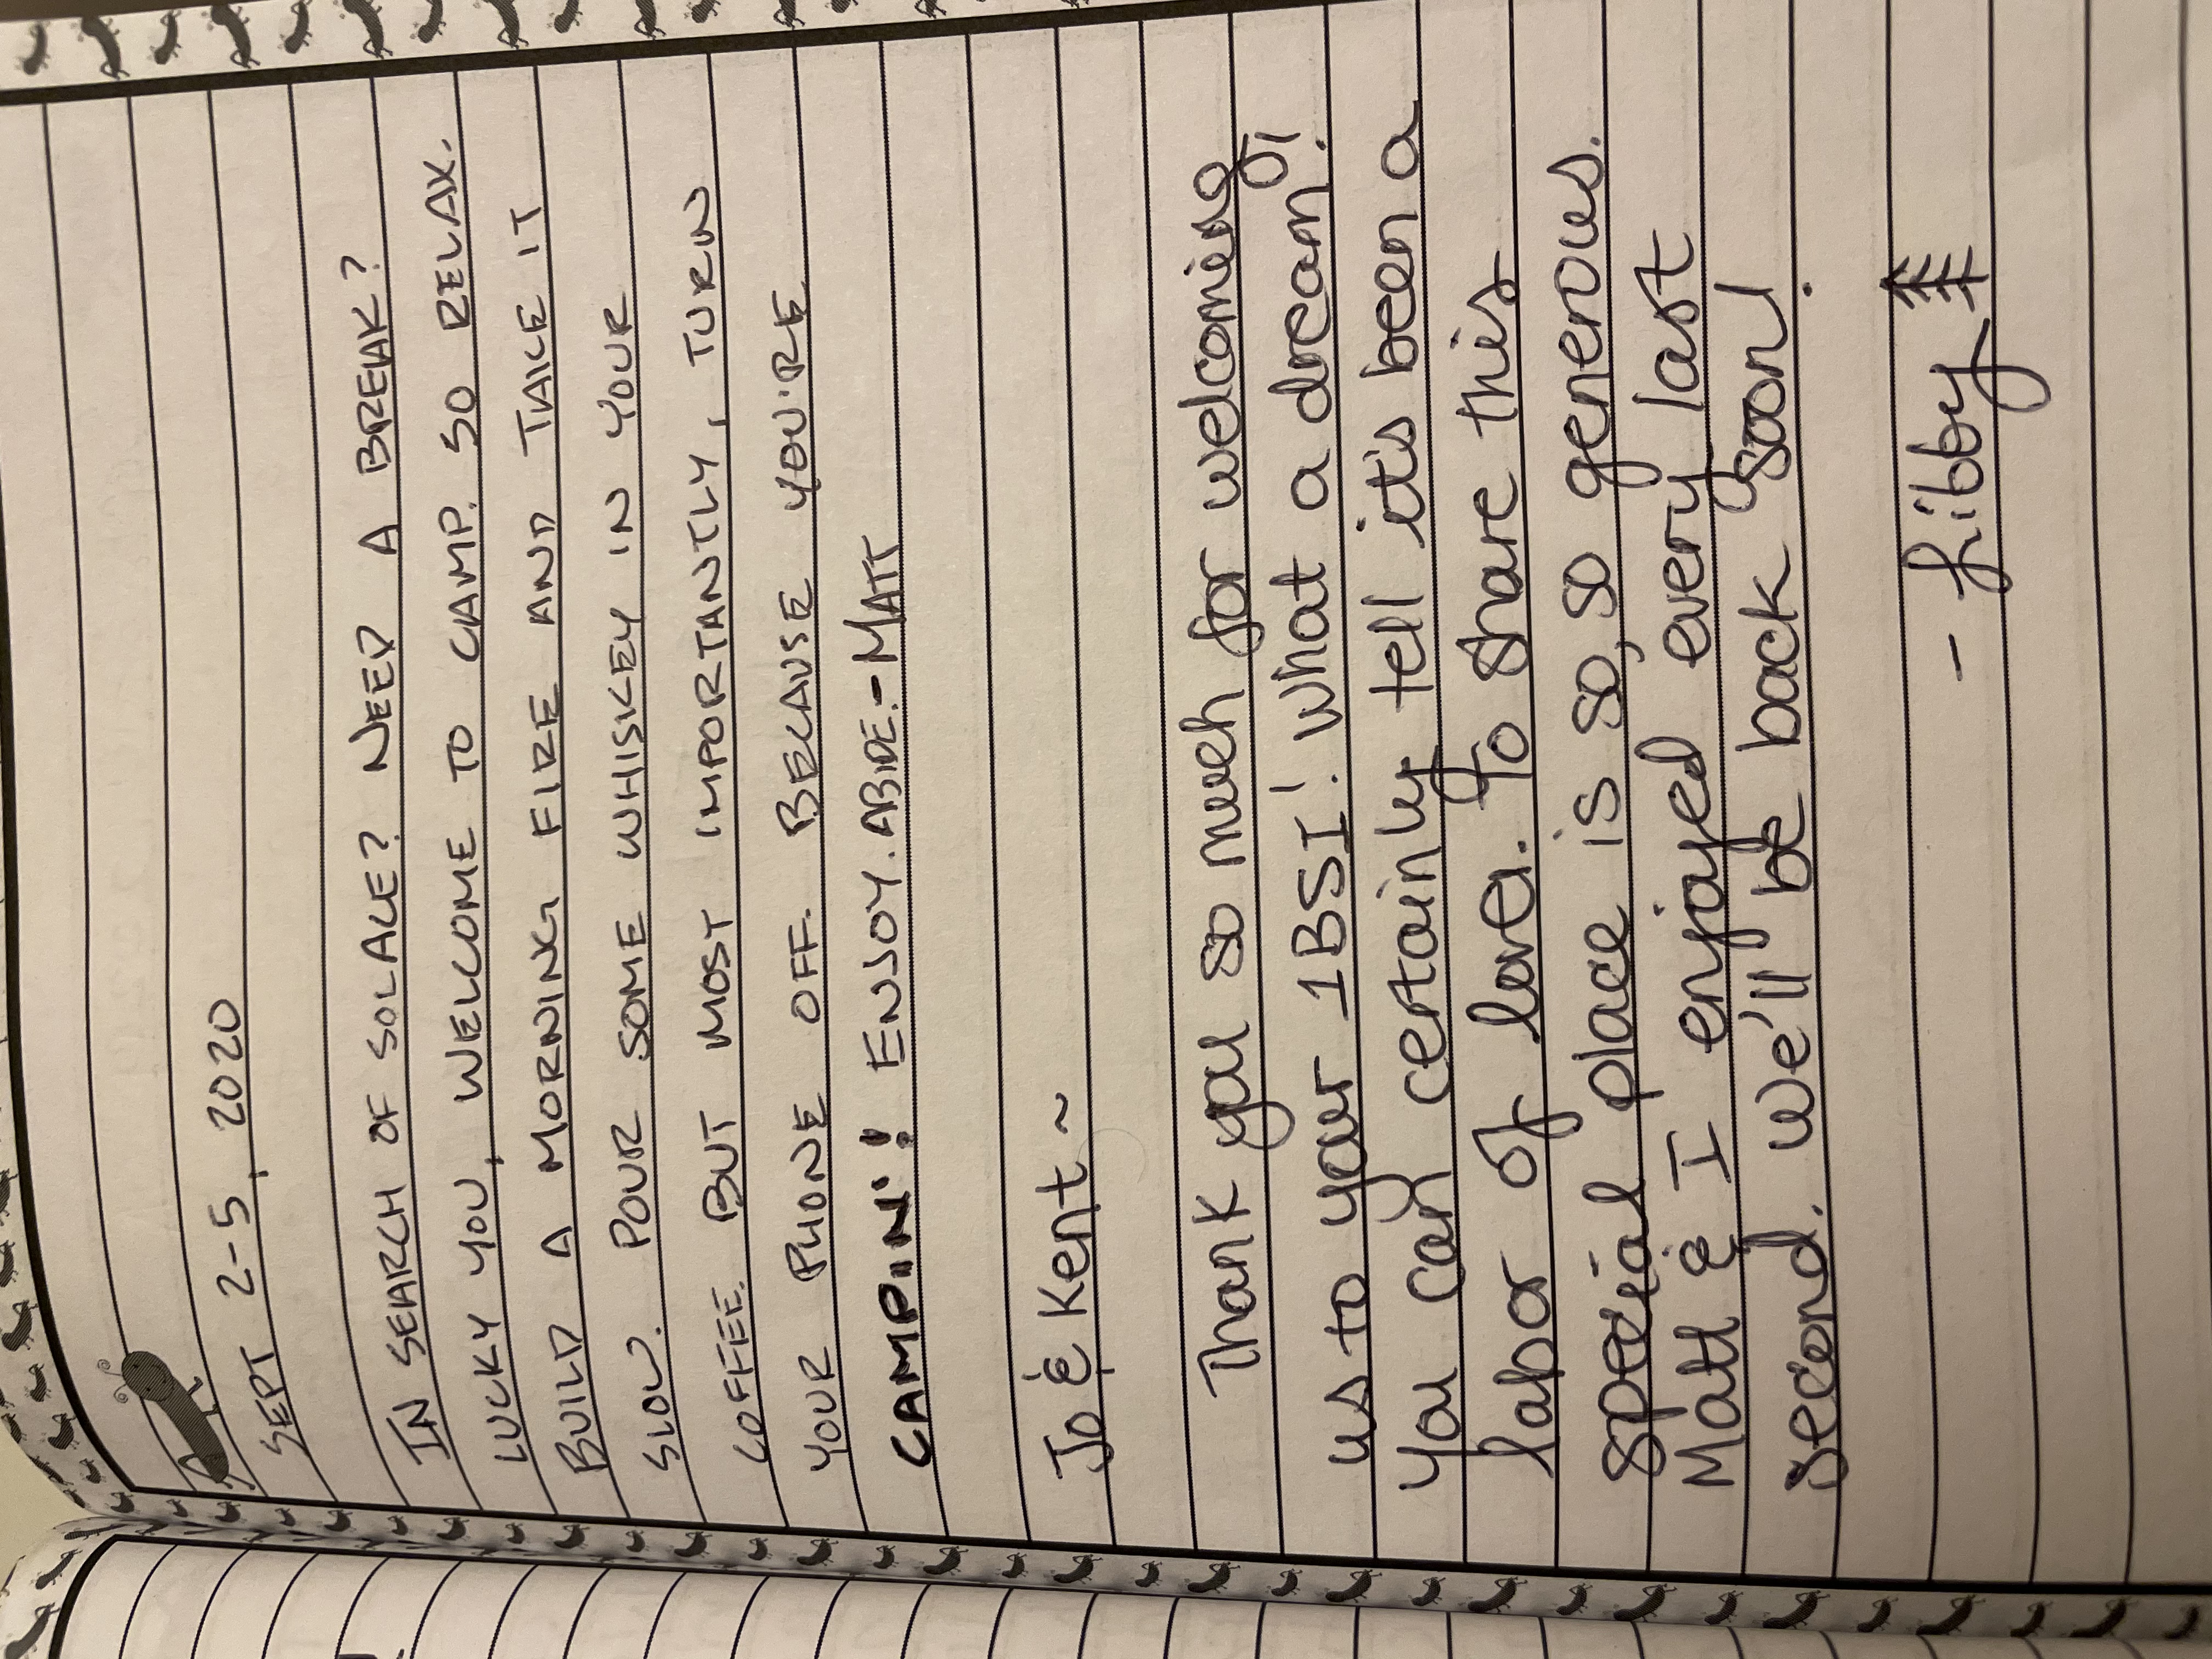 SEPT 2-5, 2020
IN SEARCH OF SOLACE? NEED A BREAK?
LUCKY YOU, WELCOME TO CAMP. SO RELAX.
BUILD A MORNING FIRE AND TAKE IT
SLOW. POUR SOME WHISKEY IN YOUR
COFFEE. BUT MOST IMPORTANTLY, TURN
YOUR PHONE OFF. BECAUSE YOU'RE
CAMPIN'! ENJOY. ABIDE. - MATT
Jo & Kent ~
Thank you so much for welcoming
us to your 1BSI! What a dream!
You can certainly tell it's been a
labor of love. To share this
special place is so, so generous.
Matt & I enjoyed every last
second. We'll be back soon!
- Libby